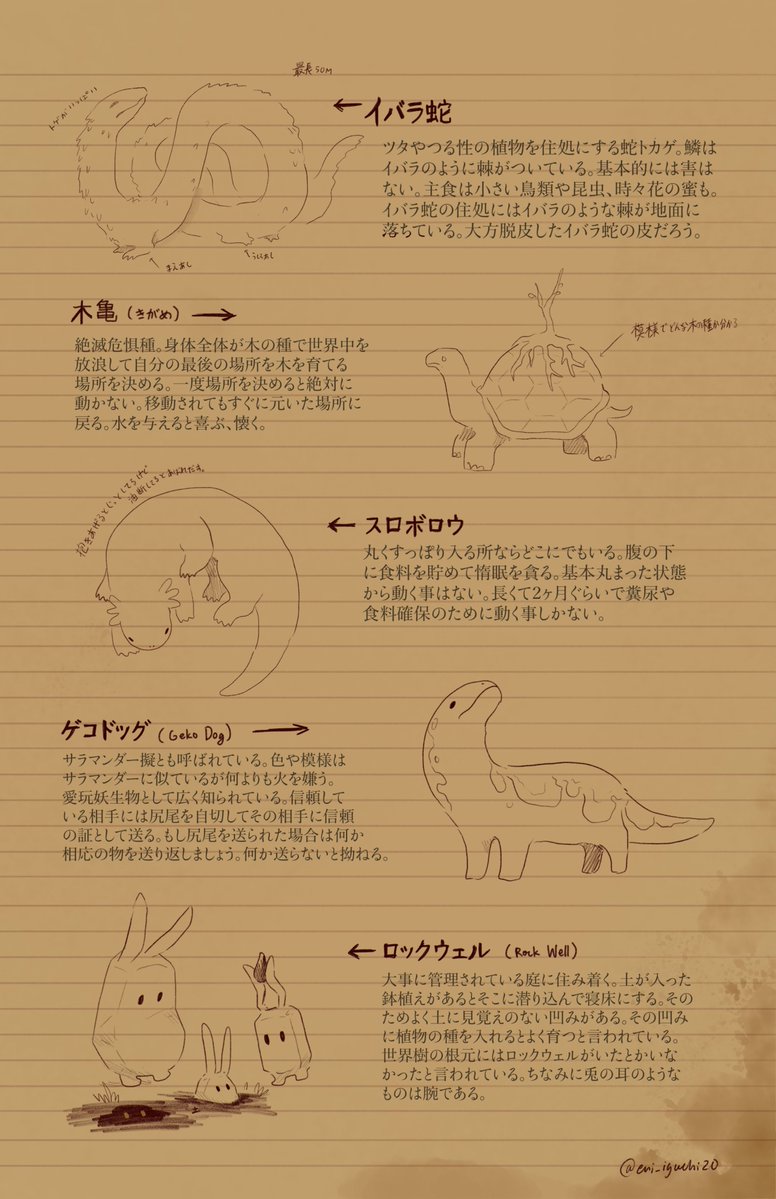 最長50M
トゲがいっぱい
←イバラ蛇
ツタやつる性の植物を住処にする蛇トカゲ。鱗は
イバラのように棘がついている。基本的には害は
ない。主食は小さい鳥類や昆虫、時々花の蜜も。
イバラ蛇の住処にはイバラのような棘が地面に
落ちている。大方脱皮したイバラ蛇の皮だろう。
まえあし
うしろあし
木亀(きがめ)→
絶滅危惧種。身体全体が木の種で世界中を
放浪して自分の最後の場所を木を育てる
場所を決める。一度場所を決めると絶対に
動かない。移動されてもすぐに元いた場所に
戻る。水を与えると喜ぶ、懐く。
模様でどんな木の種か分かる
抱きあげるとじっとしてるけど
油断してるとあばれだす。
←スロボロウ
丸くすっぽり入る所ならどこにでもいる。腹の下
に食料を貯めて惰眠を貪る。基本丸まった状態
から動く事はない。長くて2ヶ月ぐらいで糞尿や
食料確保のために動く事しかない。
ゲコドッグ(Geko Dog)→
サラマンダー擬とも呼ばれている。色や模様は
サラマンダーに似ているが何よりも火を嫌う。
愛玩妖生物として広く知られている。信頼して
いる相手には尻尾を自切してその相手に信頼
の証として送る。もし尻尾を送られた場合は何か
相応の物を送り返しましょう。何か送らないと拗ねる。
←ロックウェル(Rock Well)
大事に管理されている庭に住み着く。土が入った
鉢植えがあるとそこに潜り込んで寝床にする。その
ためよく土に見覚えのない凹みがある。その凹み
に植物の種を入れるとよく育つと言われている。
世界樹の根元にはロックウェルがいたとかいな
かったと言われている。ちなみに兎の耳のような
ものは腕である。
@eni_iguchi20